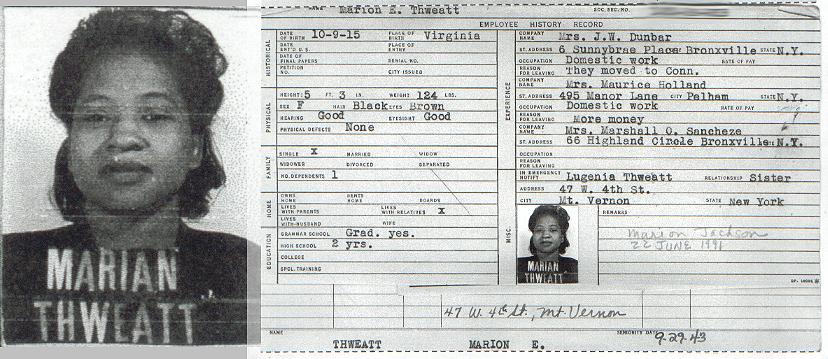 MARIAN
THWEATT
NAME Marion E. Thweatt SOC. SEC. NO.
EMPLOYEE HISTORY RECORD
HISTORICAL
DATE OF BIRTH 10-9-15 PLACE OF BIRTH Virginia
DATE ENT'D U.S. PLACE OF ENTRY
DATE OF FINAL PAPERS SERIAL NO.
PETITION NO. CITY ISSUED
PHYSICAL
HEIGHT: 5 FT. 3 IN. WEIGHT 124 LBS.
SEX F HAIR Black EYES Brown
HEARING Good EYESIGHT Good
PHYSICAL DEFECTS None
FAMILY
SINGLE X MARRIED WIDOW
WIDOWER DIVORCED SEPARATED
NO. DEPENDENTS 1
HOME
OWNS HOME RENTS HOME BOARDS
LIVES WITH PARENTS LIVES WITH RELATIVES X
LIVES WITH HUSBAND WIFE
EDUCATION
GRAMMAR SCHOOL Grad. yes.
HIGH SCHOOL 2 yrs.
COLLEGE
SPCL. TRAINING
EXPERIENCE
COMPANY NAME Mrs. J.W. Dunbar
ST. ADDRESS 6 Sunnybrae Place Bronxville STATE N.Y.
OCCUPATION Domestic work RATE OF PAY
REASON FOR LEAVING They moved to Conn.
COMPANY NAME Mrs. Maurice Holland
ST. ADDRESS 495 Manor Lane CITY Pelham STATE N.Y.
OCCUPATION Domestic work RATE OF PAY
REASON FOR LEAVING More money
COMPANY NAME Mrs. Marshall O. Sancheze
ST. ADDRESS 66 Highland Circle Bronxville N.Y.
OCCUPATION
REASON FOR LEAVING
MISC.
IN EMERGENCY NOTIFY Lugenia Thweatt RELATIONSHIP Sister
ADDRESS 47 W. 4th St.
CITY Mt. Vernon STATE New York
REMARKS
Marion Jackson
22 JUNE 1991
MARIAN
THWEATT
47 W. 4th St., Mt. Vernon
NAME THWEATT MARION E. SENIORITY DATE 9-29-43